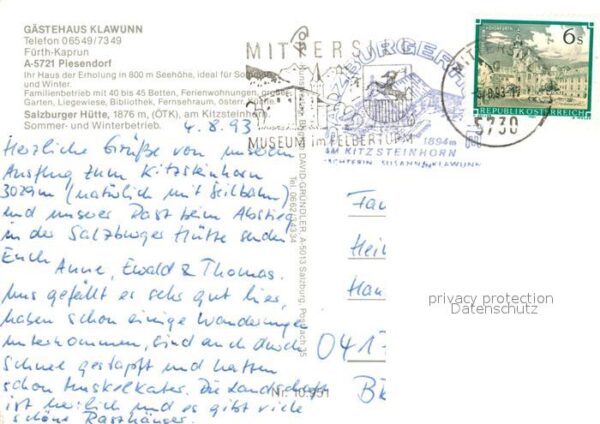 GÄSTEHAUS KLAWUNN
Telefon 06549/7349
Fürth-Kaprun
A-5721 Piesendorf
Ihr Haus der Erholung in 800 m Seehöhe, ideal für So
und Winter.
Familienbetrieb mit 40 bis 45 Betten, Ferienwohnungen, große
Garten, Liegewiese, Bibliothek, Fernsehraum, österr.
Salzburger Hütte, 1876 m, (ÖTK), am Kitzsteinhorn
Sommer- und Winterbetrieb.
4.8.93
Herzliche Grüße von unserem
Ausflug zum Kitzsteinhorn
3029m (natürlich mit Seilbahn)
und unserer Rast beim Abstieg
in der Salzburger Hütte senden
Euch
Anne, Ewald & Thomas.
Uns gefällt es sehr gut hier,
haben schon einige Wanderungen
unternommen, sind auch durch
Schnee gestapft und hatten
schon Muskelkater. Die Landschaft
ist herrlich und es gibt viele
schöne Rasthäuser.
MITTERSILL
MUSEUM im FELBERTURM
ZBURGERH
1894m
AM KITZSTEINHORN
SUSANN KLAWUNN
DAVID-GRÜNDLER, A-5013 Salzburg, Postfach 35
Tel. 0662/34334
Nr. 10.951
6 s
REPUBLIK ÖSTERREICH
5730
Fau
Hein
Han
0417
privacy protection
Datenschutz